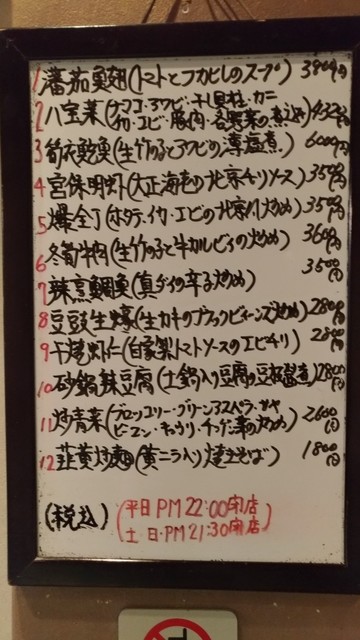 1 蕃茄魚翅(トマトとフカヒレのスープ) 3800円
2 八宝菜(ナマコ・アワビ・干し貝柱・カニ
イカ・エビ・豚肉・各野菜の煮込み) 4320円
3 筍衣鮑魚(生竹の子とアワビの薄塩煮) 6000円
4 宮保明虾(大正海老の北京チリソース) 3500円
5 爆全丁(ホタテ・イカ・エビの北京風炒め) 3500円
6 冬筍牛肉(生竹の子と牛カルビの炒め) 3600円
7 辣烹鯛魚(真ダイの辛子炒め) 3500円
8 豆豉生蠔(生カキのブラックビーンズ炒め) 2800円
9 干燒虾仁(自家製トマトソースのエビチリ) 2800円
10 砂鍋辣豆腐(土鍋入り豆腐の豆板醤煮) 2800円
11 炒青菜(ブロッコリー・グリーンアスパラ・サヤ
ピーマン・キュウリ・チンゲン菜の炒め) 2600円
12 韮黄炒麺(黄ニラ入り焼きそば) 1800円
(税込)
(平日PM22:00閉店
土日・PM21:30閉店)